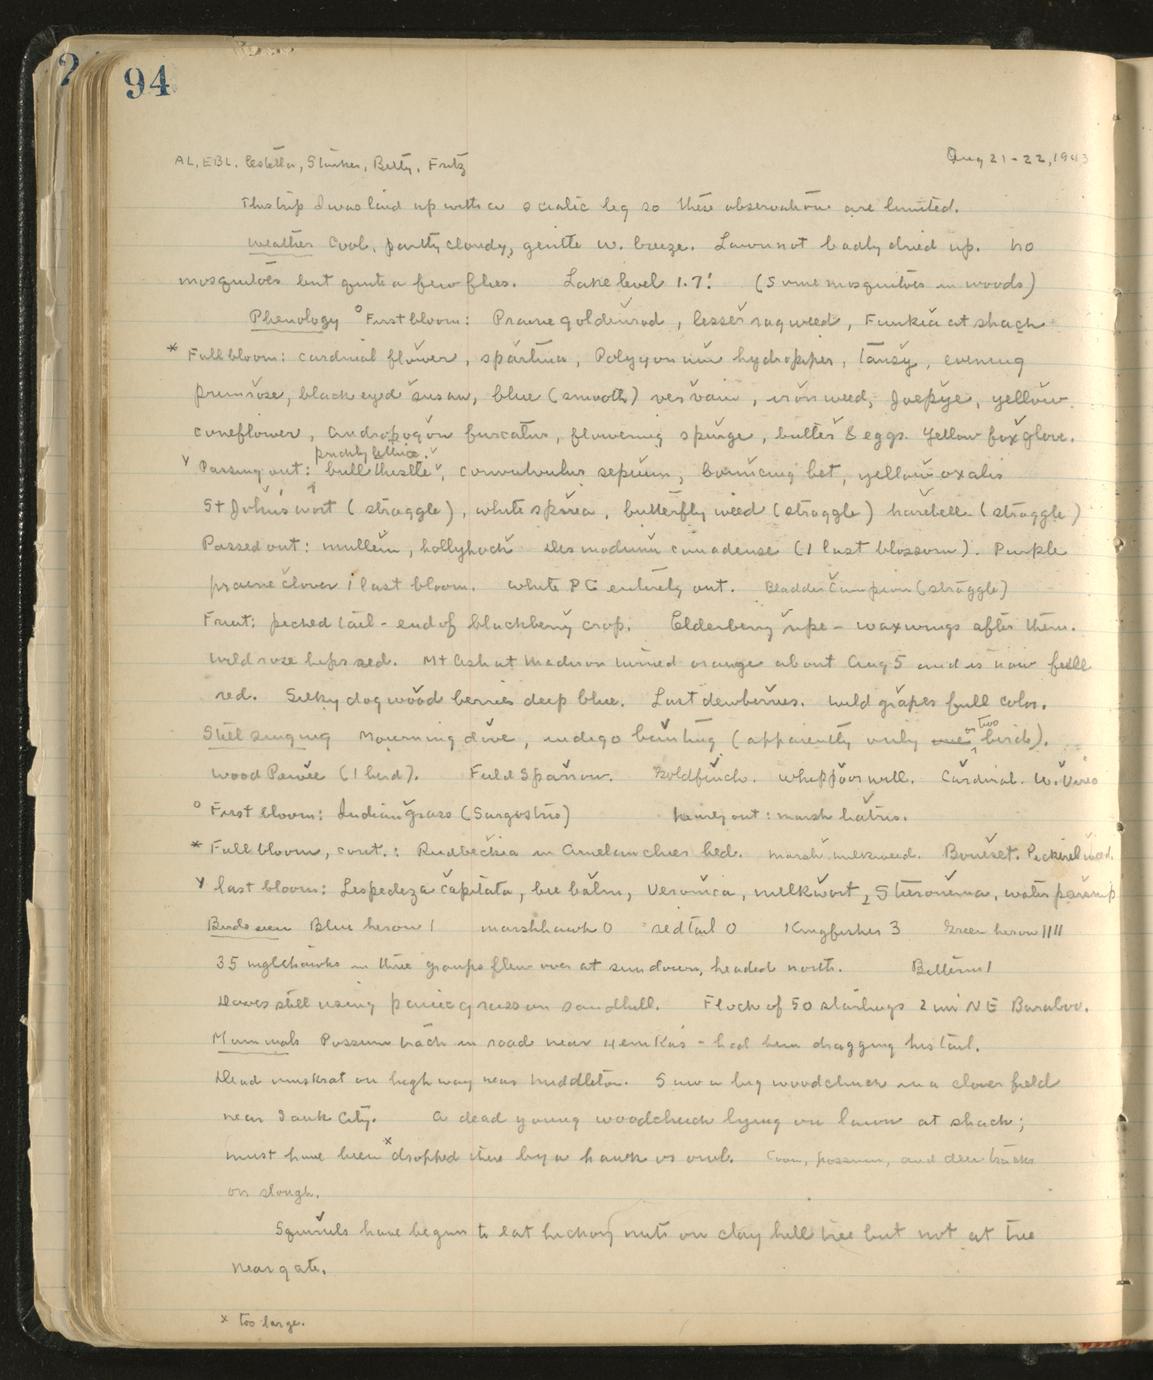 94
AL, EBL, Estella, Starker, Betty, Fritz Aug 21-22, 1943
This trip I was laid up with a sciatic leg so these observations are limited.
Weather Cool, partly cloudy, gentle w. breeze. Lawn not badly dried up. No
mosquitoes but quite a few flies. Lake level 1.7! (Some mosquitoes in woods)
Phenology ° First bloom: Prairie goldenrod, lesser ragweed, Funkia at shack
* Full bloom: cardinal flower, spartina, Polygonum hydropiper, tansy, evening
primrose, black eyed susan, blue (smooth) vervain, ironweed, Joepye, yellow
coneflower, Andropogon furcatus, flowering spurge, butter & eggs. Yellow foxglove.
prickly lettuce.
v Passing out: bull thistle, convulvulus sepium, bouncing bet, yellow oxalis
St Johns wort (straggle), white spirea, butterfly weed (straggle) harebell (straggle)
Passed out: mullein, hollyhock Desmodium canadense (1 last blossom). Purple
prairie clover 1 last bloom. White PC entirely out. Bladder Campion (straggle)
Fruit: picked 1 pail - end of blackberry crop. Elderberry ripe - waxwings after them.
Wild rose heps red. Mt Ash at Madison turned orange about Aug 5 and is now full
red. Silky dogwood berries deep blue. Last dewberries. Wild grapes full color.
Still singing Mourning dove, indigo bunting (apparently only one or two birds).
Wood Pewee (1 bird). Field Sparrow. Goldfinch. Whippoorwill. Cardinal. W. Vireo
° First bloom: Indian grass (Sorgastrus) Passing out: marsh liatris.
* Full bloom, cont.: Rudbeckia in Amelanchier bed. Marsh milkweed. Boneset. Pickerel weed.
v last bloom: Lespedeza capitata, bee balm, Veronica, milkwort, Steironema, water parsnip
Birds seen Blue heron 1 marshhawk 0 redtail 0 Kingfisher 3 Green heron 1111
35 nighthawks in three groups flew over at sundown, headed north. Bittern 1
Doves still using panic grass on sandhill. Flock of 50 starlings 2 mi NE Baraboo.
Mammals Possum track in road near - had been dragging his tail.
Dead muskrat on highway near Middleton. Saw a big woodchuck in a clover field
near Sauk City. A dead young woodchuck lying on lawn at shack;
must have been x dropped there by a hawk or owl. Coon, possum, and deer tracks
on slough.
Squirrels have begun to eat hickory nuts on clay hill tree but not at tree
near gate.
x too large.